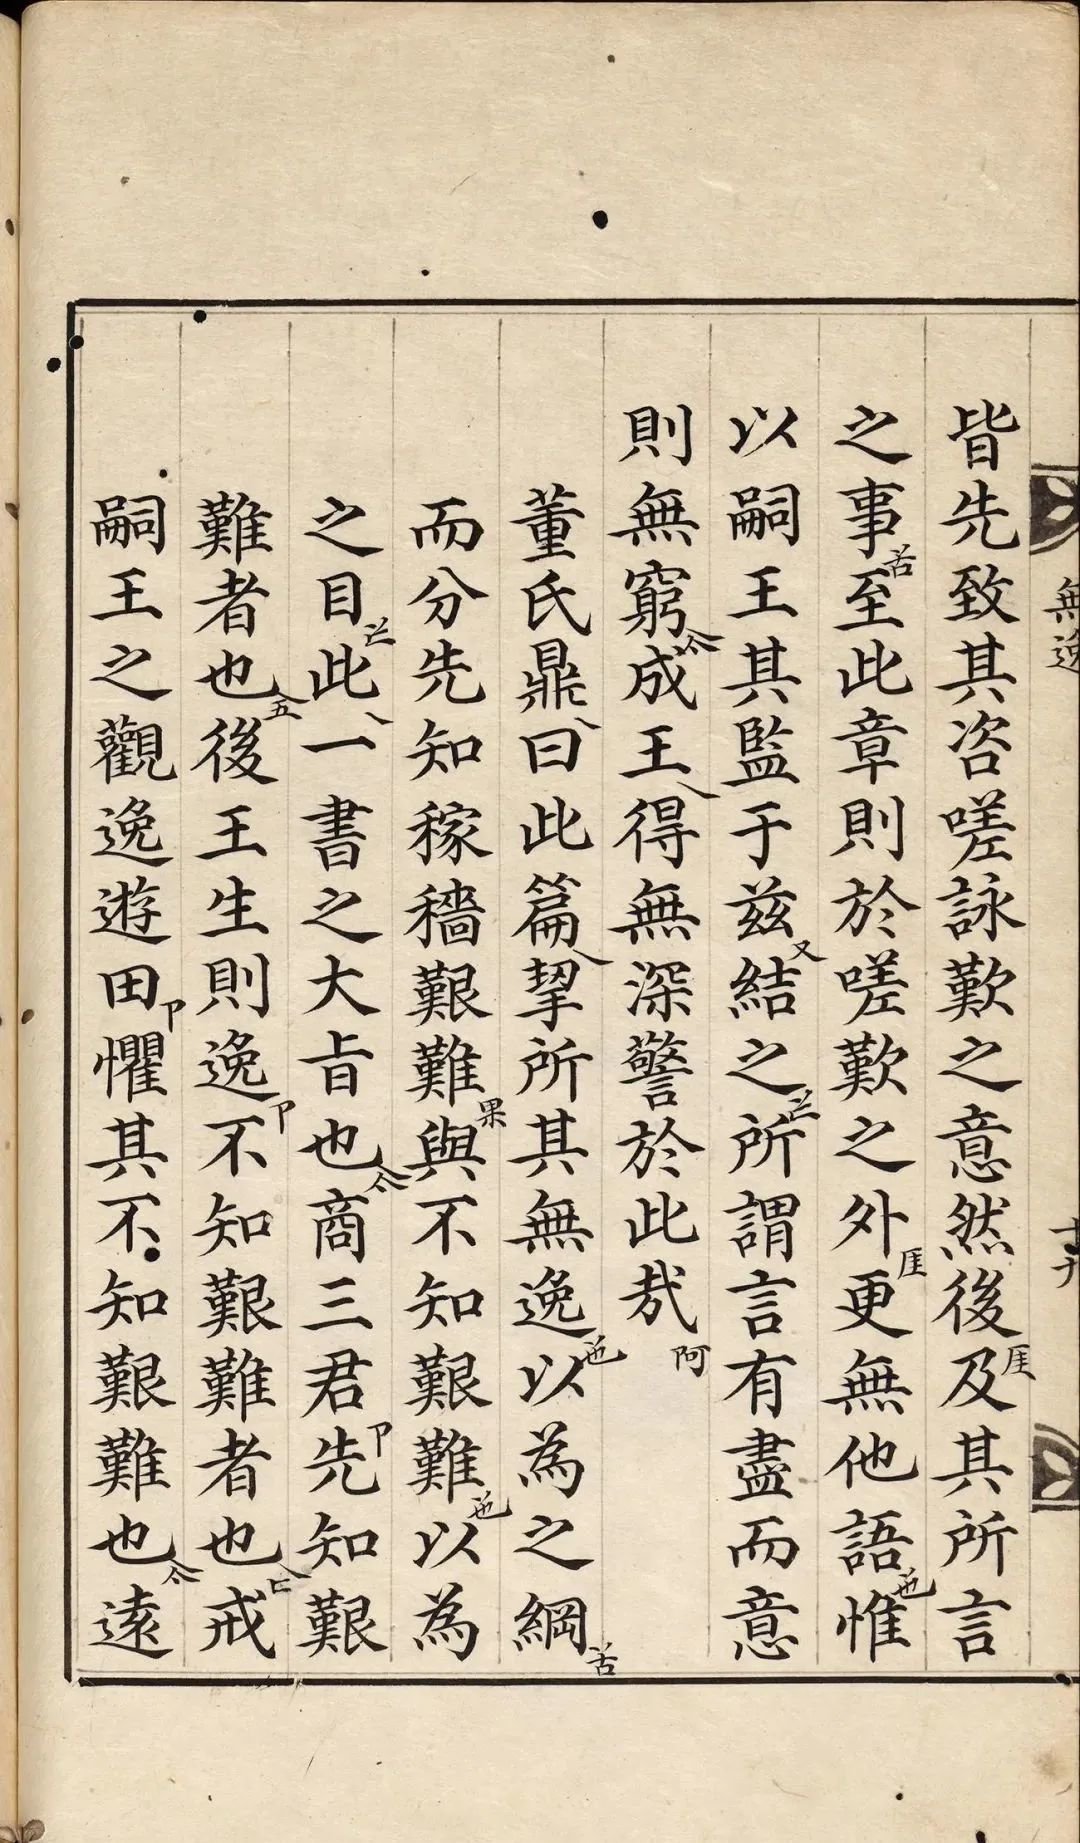 無逸
皆先致其咨嗟詠歎之意然後厓及其所言
之事苦至此章則於嗟歎之外厓更無他語也惟
以嗣王其監于茲又結之所謂言有盡而意
則無窮亽成王乀得無深警於此哉阿
董氏鼎乀曰此篇乀挈所其無逸也以為之綱苦
而分先知稼穡艱難果與不知艱難也以為
之目此乀一書之大旨也亽商三君先卩知艱
難者也五後王生則逸卩不知艱難者也戒
嗣王之觀逸遊田卩懼其不知艱難也亽遠